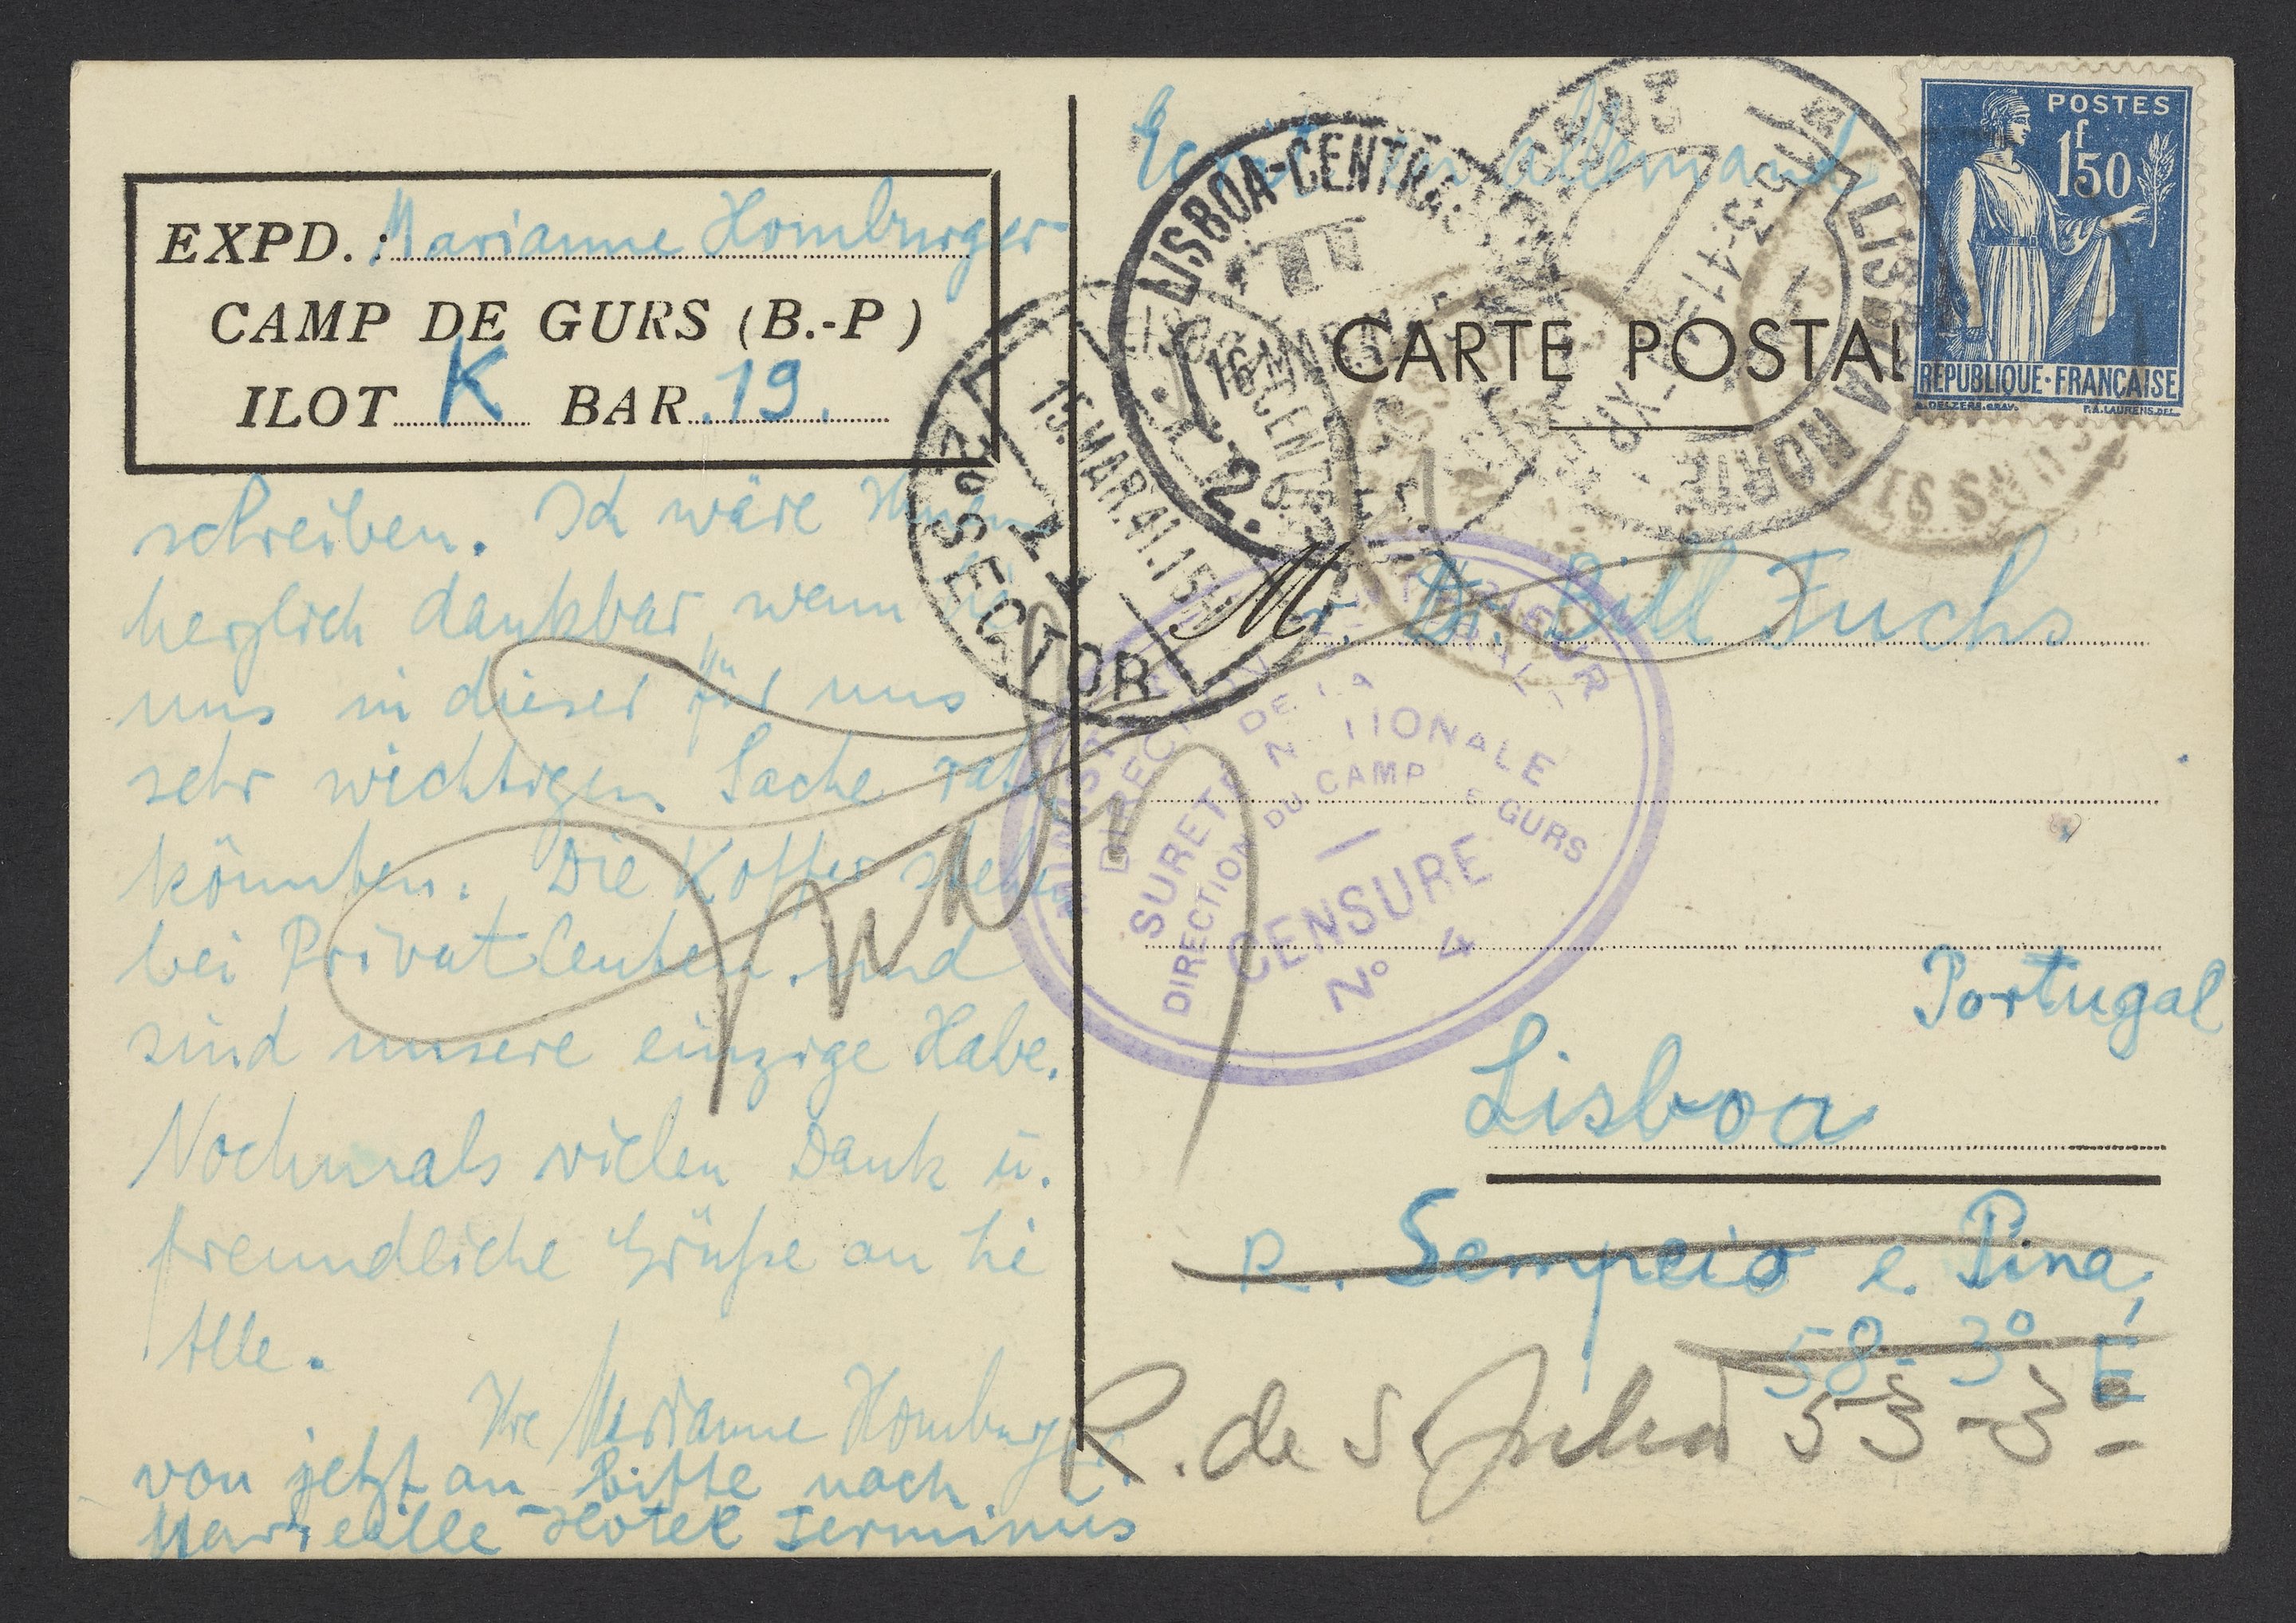 EXPD. : Marianne Homburger
CAMP DE GURS (B.-P )
ILOT K BAR. 19.
schreiben. Ich wäre Ihnen
herzlich dankbar, wenn
uns in dieser für uns
sehr wichtigen Sache
könnten. Die Koffer stehen
bei Privatleuten und
sind unsere einzige Habe.
Nochmals vielen Dank u.
freundliche Grüße an Sie
Alle.
Ihre Marianne Homburger.
von jetzt an bitte nach
Marseille Hotel Terminus
allemand
POSTES
1f50
REPUBLIQUE·FRANÇAISE
P.A.LAURENS.DEL.
LISBOA-CENTRAL
16
2.
15.MAR.41.15
2º SECTOR
LISBOA NORTE
CARTE POSTAL
Mr. Dr. Bill Fuchs
DE LA
SURETE NATIONALE
DIRECTION DU CAMP DE GURS
CENSURE
Nº 4
Portugal
Lisboa
R. Sempeio e. Pina,
58- 3º E
R. de S. Julião 53-3º